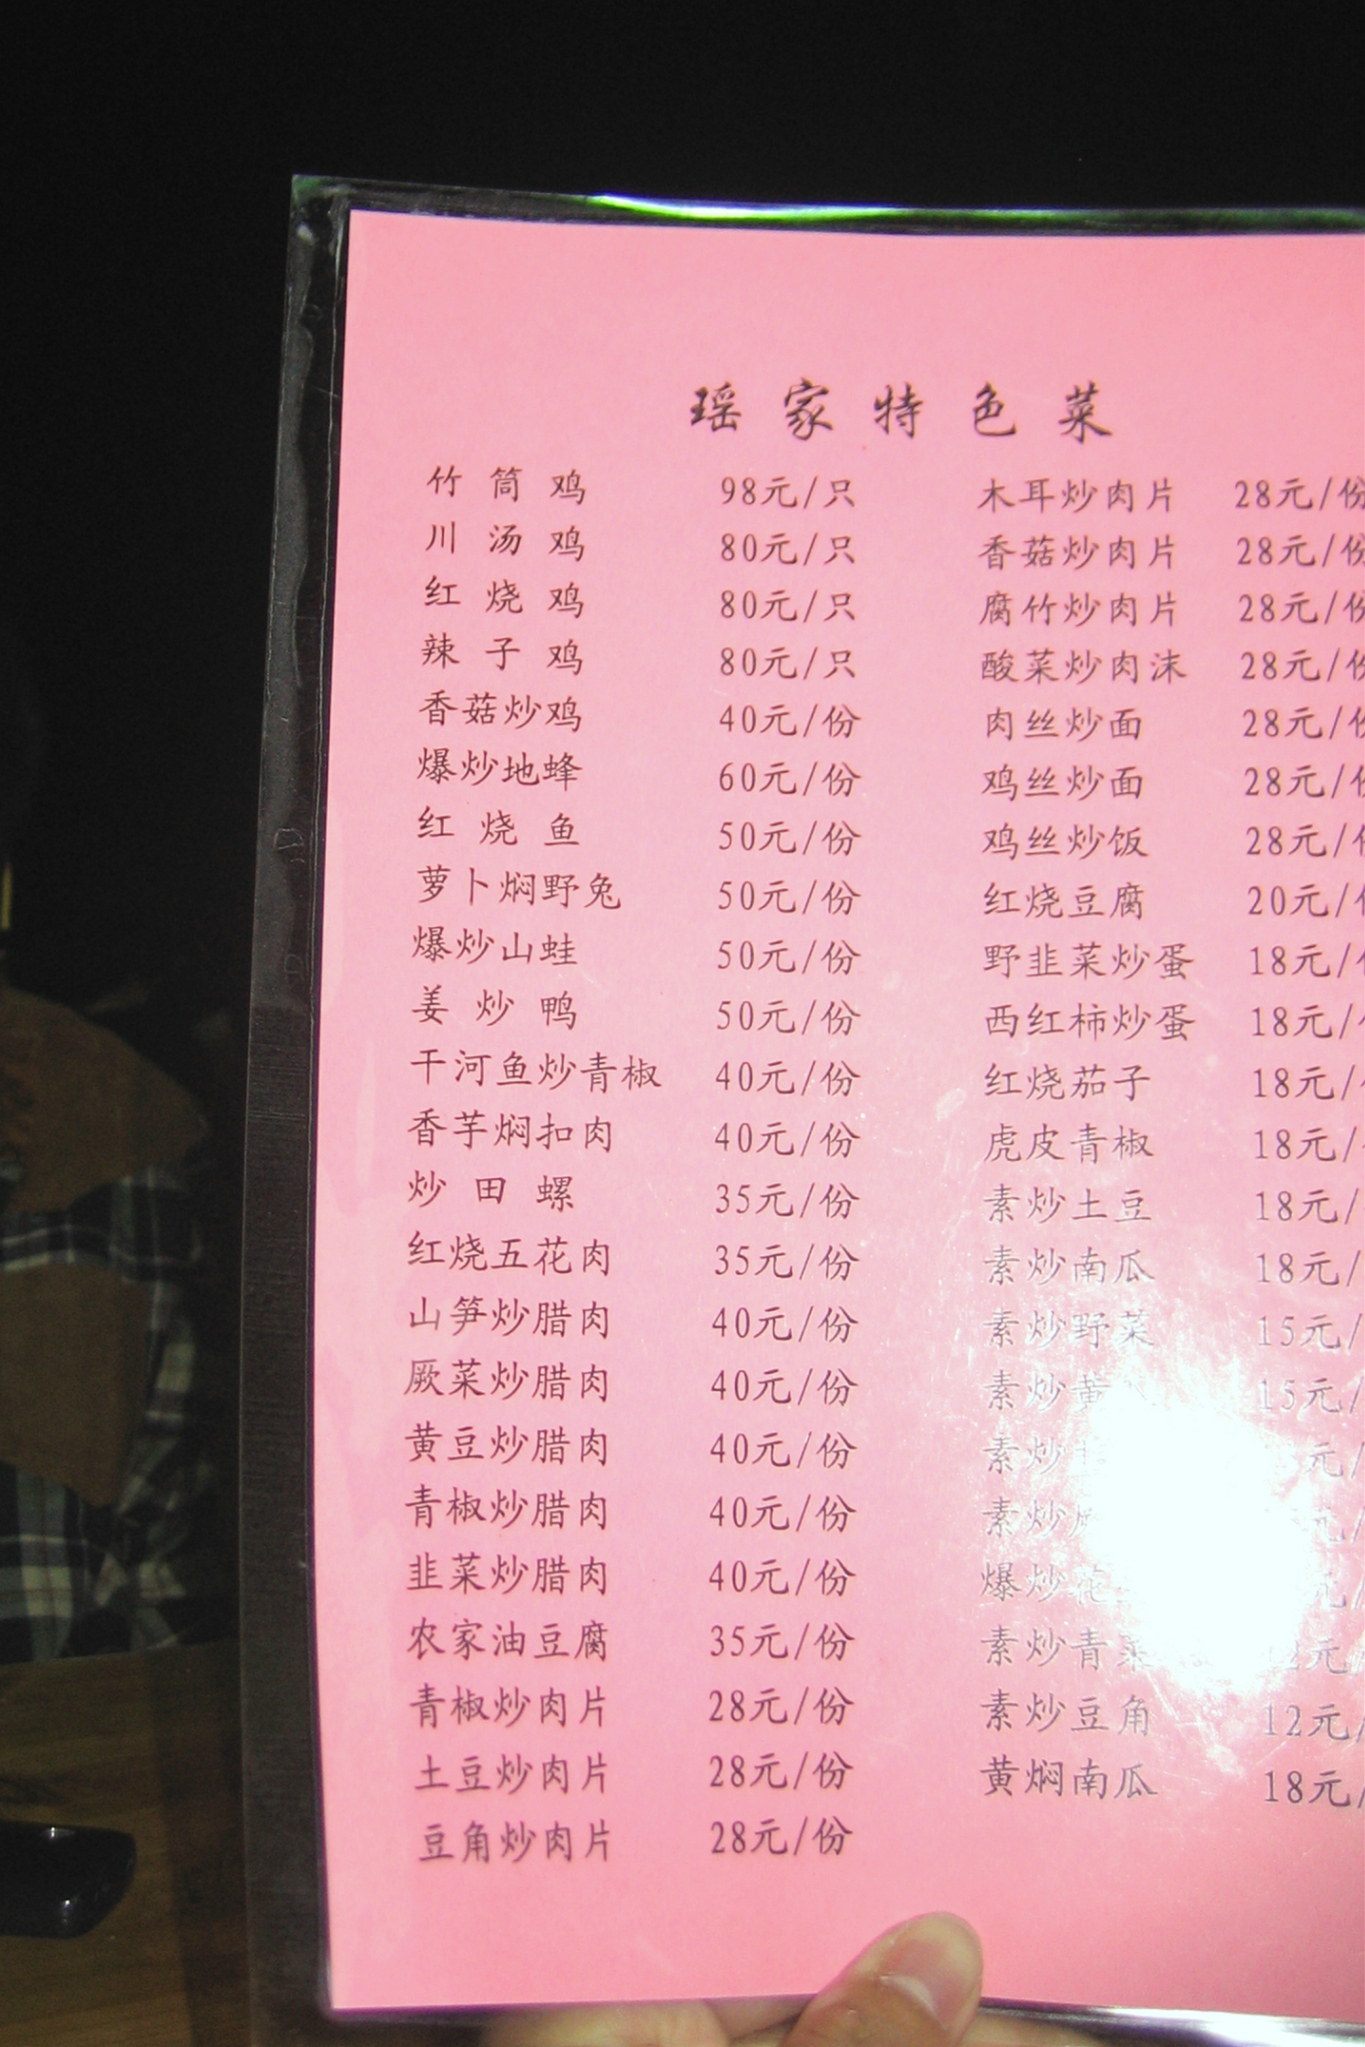 瑶家特色菜
竹筒鸡 98元/只
川汤鸡 80元/只
红烧鸡 80元/只
辣子鸡 80元/只
香菇炒鸡 40元/份
爆炒地蜂 60元/份
红烧鱼 50元/份
萝卜焖野兔 50元/份
爆炒山蛙 50元/份
姜炒鸭 50元/份
干河鱼炒青椒 40元/份
香芋焖扣肉 40元/份
炒田螺 35元/份
红烧五花肉 35元/份
山笋炒腊肉 40元/份
厥菜炒腊肉 40元/份
黄豆炒腊肉 40元/份
青椒炒腊肉 40元/份
韭菜炒腊肉 40元/份
农家油豆腐 35元/份
青椒炒肉片 28元/份
土豆炒肉片 28元/份
豆角炒肉片 28元/份
木耳炒肉片 28元/份
香菇炒肉片 28元/份
腐竹炒肉片 28元/份
酸菜炒肉沫 28元/份
肉丝炒面 28元/份
鸡丝炒面 28元/份
鸡丝炒饭 28元/份
红烧豆腐 20元/
野韭菜炒蛋 18元/
西红柿炒蛋 18元/
红烧茄子 18元/
虎皮青椒 18元/
素炒土豆 18元/
素炒南瓜 18元/
素炒野菜 15元/
素炒黄 15元/
素炒 元/
素炒 元/
爆炒花 元/
素炒青菜 元/
素炒豆角 12元/
黄焖南瓜 18元/